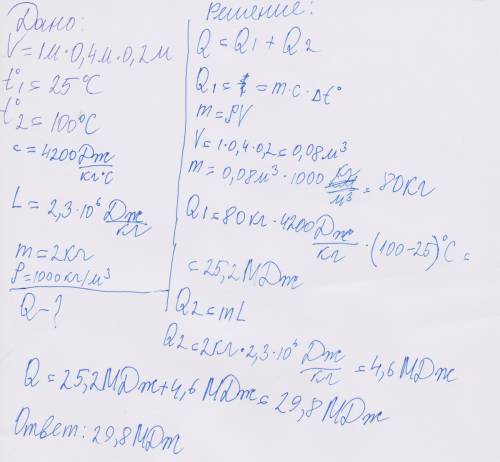 Дано:
V=1м·0,4м·0,2м
t°1=25°C
t°2=100°C
c=4200 Дж/кг·°C
L=2,3·10⁶ Дж/кг
m=2кг
ρ=1000кг/м³
Q-?
Решение:
Q=Q1+Q2
Q1= =m·c·Δt°
m=ρV
V=1·0,4·0,2=0,08м³
m=0,08м³·1000 кг/м³=80кг
Q1=80кг·4200 Дж/кг·(100-25)°C=
=25,2МДж
Q2=mL
Q2=2кг·2,3·10⁶ Дж/кг=4,6МДж
Q=25,2МДж+4,6МДж=29,8МДж
Ответ: 29,8МДж